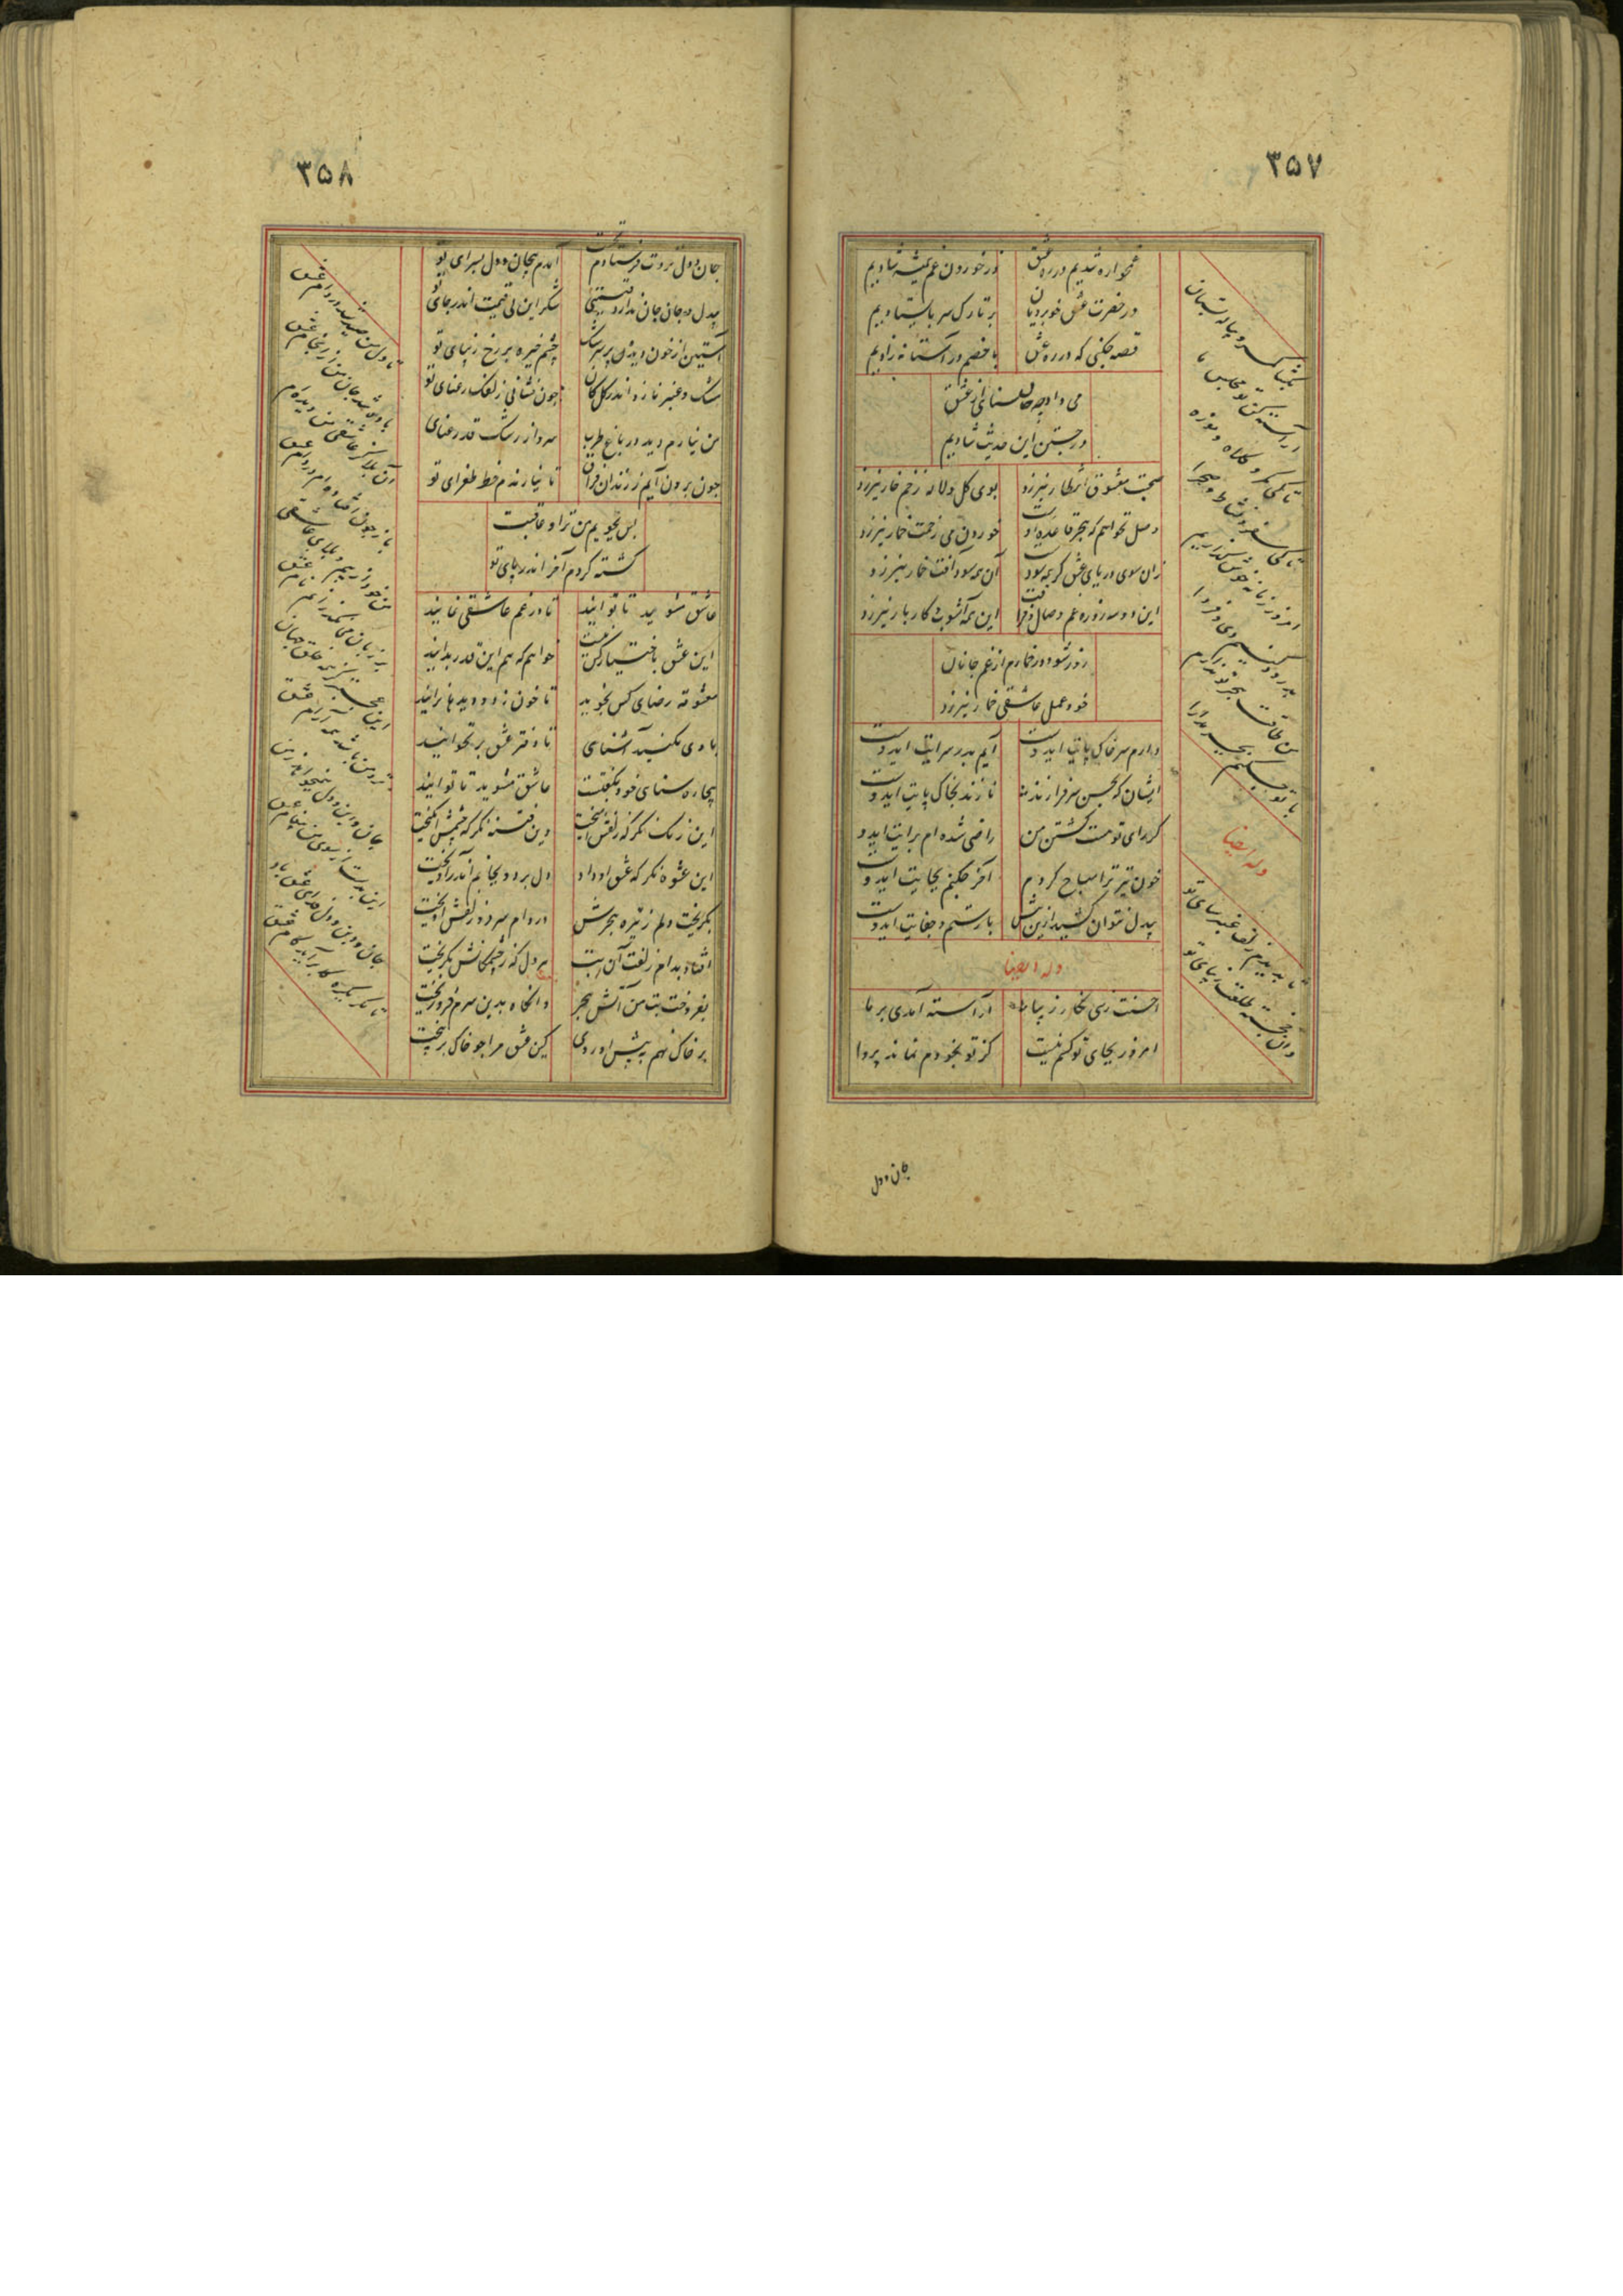 ۳۵۷
غمخواره شدیم در ره عشق در خوردن غم همیشه شادیم
در حضرت عشق خوبرویان بر تارک سر بایستادیم
قصه چکنی که در ره عشق با خصم در آستانه زادیم
می داد چه حال سنائی از عشق
در جستن این حدیث شادیم
صحبت معشوق انتظار نیرزد بوی گل و لاله زخم خار نیرزد
وصل نخواهم که هجر قاعده اوست خوردن می زحمت خمار نیرزد
زان سوی دریای عشق گر همه سودست آن همه سود آفت خمار نیرزد
این دو سه روزه غم وصال و فراقت این همه آشوب کار بار نیرزد
روز شود در شمارم از غم جانان
خود عمل عاشقی شمار نیرزد
دارم سر خاک پایت ایدوست آیم بدر سرایت ایدوست
ایشان که بحسن سرفرازند نازند بخاک پایت ایدوست
گر رای تو هست کشتن من راضی شده ام برایت ایدوست
خون نیز ترا مباح کردم آخر چکنم بجایت ایدوست
بیدل نتوان کشید ازین بیش بار ستم و جفایت ایدوست
وله ایضا
احسنت زهی نگار زیبا آراسته آمدی بر ما
امروز بجای تو کسم نیست کز تو بخودم نماند پروا
بگشای کمر پیاله بستان
آراسته کن تو مجلس ما
تا کی کمر و کلاه و موزه
تا کی سفر و نشاط صحرا
امروز زمانه خوش گذاریم
بدرود کنیم دی و فردا
من طاقت هجر تو ندارم
با تو چکنم بجز مدارا
وله ایضا
تا بدیدم زلف عنبرسای تو
وان خجسته طلعت زیبای تو
جان و دل
۳۵۸
جان و دل نزدت فرستادم نخست آمدم بیجان و دل بسرای تو
بیدل و جان جان ندارد قیمتی شکر این بی قیمت اندر جای تو
آستین از خون دیده پر سرشک چشم خیره بر رخ زیبای تو
مشک و عنبر تازه اندر گل مکان چون نشانی زلفک رعنای تو
من نیارم دید در باغ طرب سرو از رشک قد رعنای تو
چون برون آیم ز زندان فراق تا نیارندم خط طغرای تو
بس بجویم من ترا و عاقبت
کشته گردم آخر اندر پای تو
عاشق مشوید تا توانید تا در غم عاشقی نمانید
این عشق باختیار کس نیست خواهم که هم این قدر بدانید
معشوقه رضای کس نجوید تا خون ز دو دیده ها نرانید
با وی مکنید آشنائی تا دفتر عشق بر نخوانید
بیچاره سنائی خود بگفتت عاشق مشوید تا توانید
این رنگ نگر که زلفش آمیخت وین فتنه نگر که چشمش انگیخت
این عشوه نگر که عشق او داد دل برد و بجانم اندر آویخت
بگریخت دلم ز تیره هجرش در دام سر دو زلفش آویخت
افتاد بدام زلفت آن بت هر دل که ز چشمکانش بگریخت
بفروخت بت من آتش هجر وانگاه بدین سرم فرو ریخت
بر خاک نهم به پیش او روی کین عشق مرا چو خاک بر بیخت
تا دل من صید شد در دام عشق
باده شد جان من اندر جام عشق
آن بلا کز عاشقی من دیده ام
باز چون افتاده ام در دام عشق
بر زبانم می نگردد نام عشق
جان و دین و دل همی خواهد ز من
این بدست از سوی من پیغام عشق
جان و دین و دل فدای عشق باد
تا مگر یکره برآید کام عشق